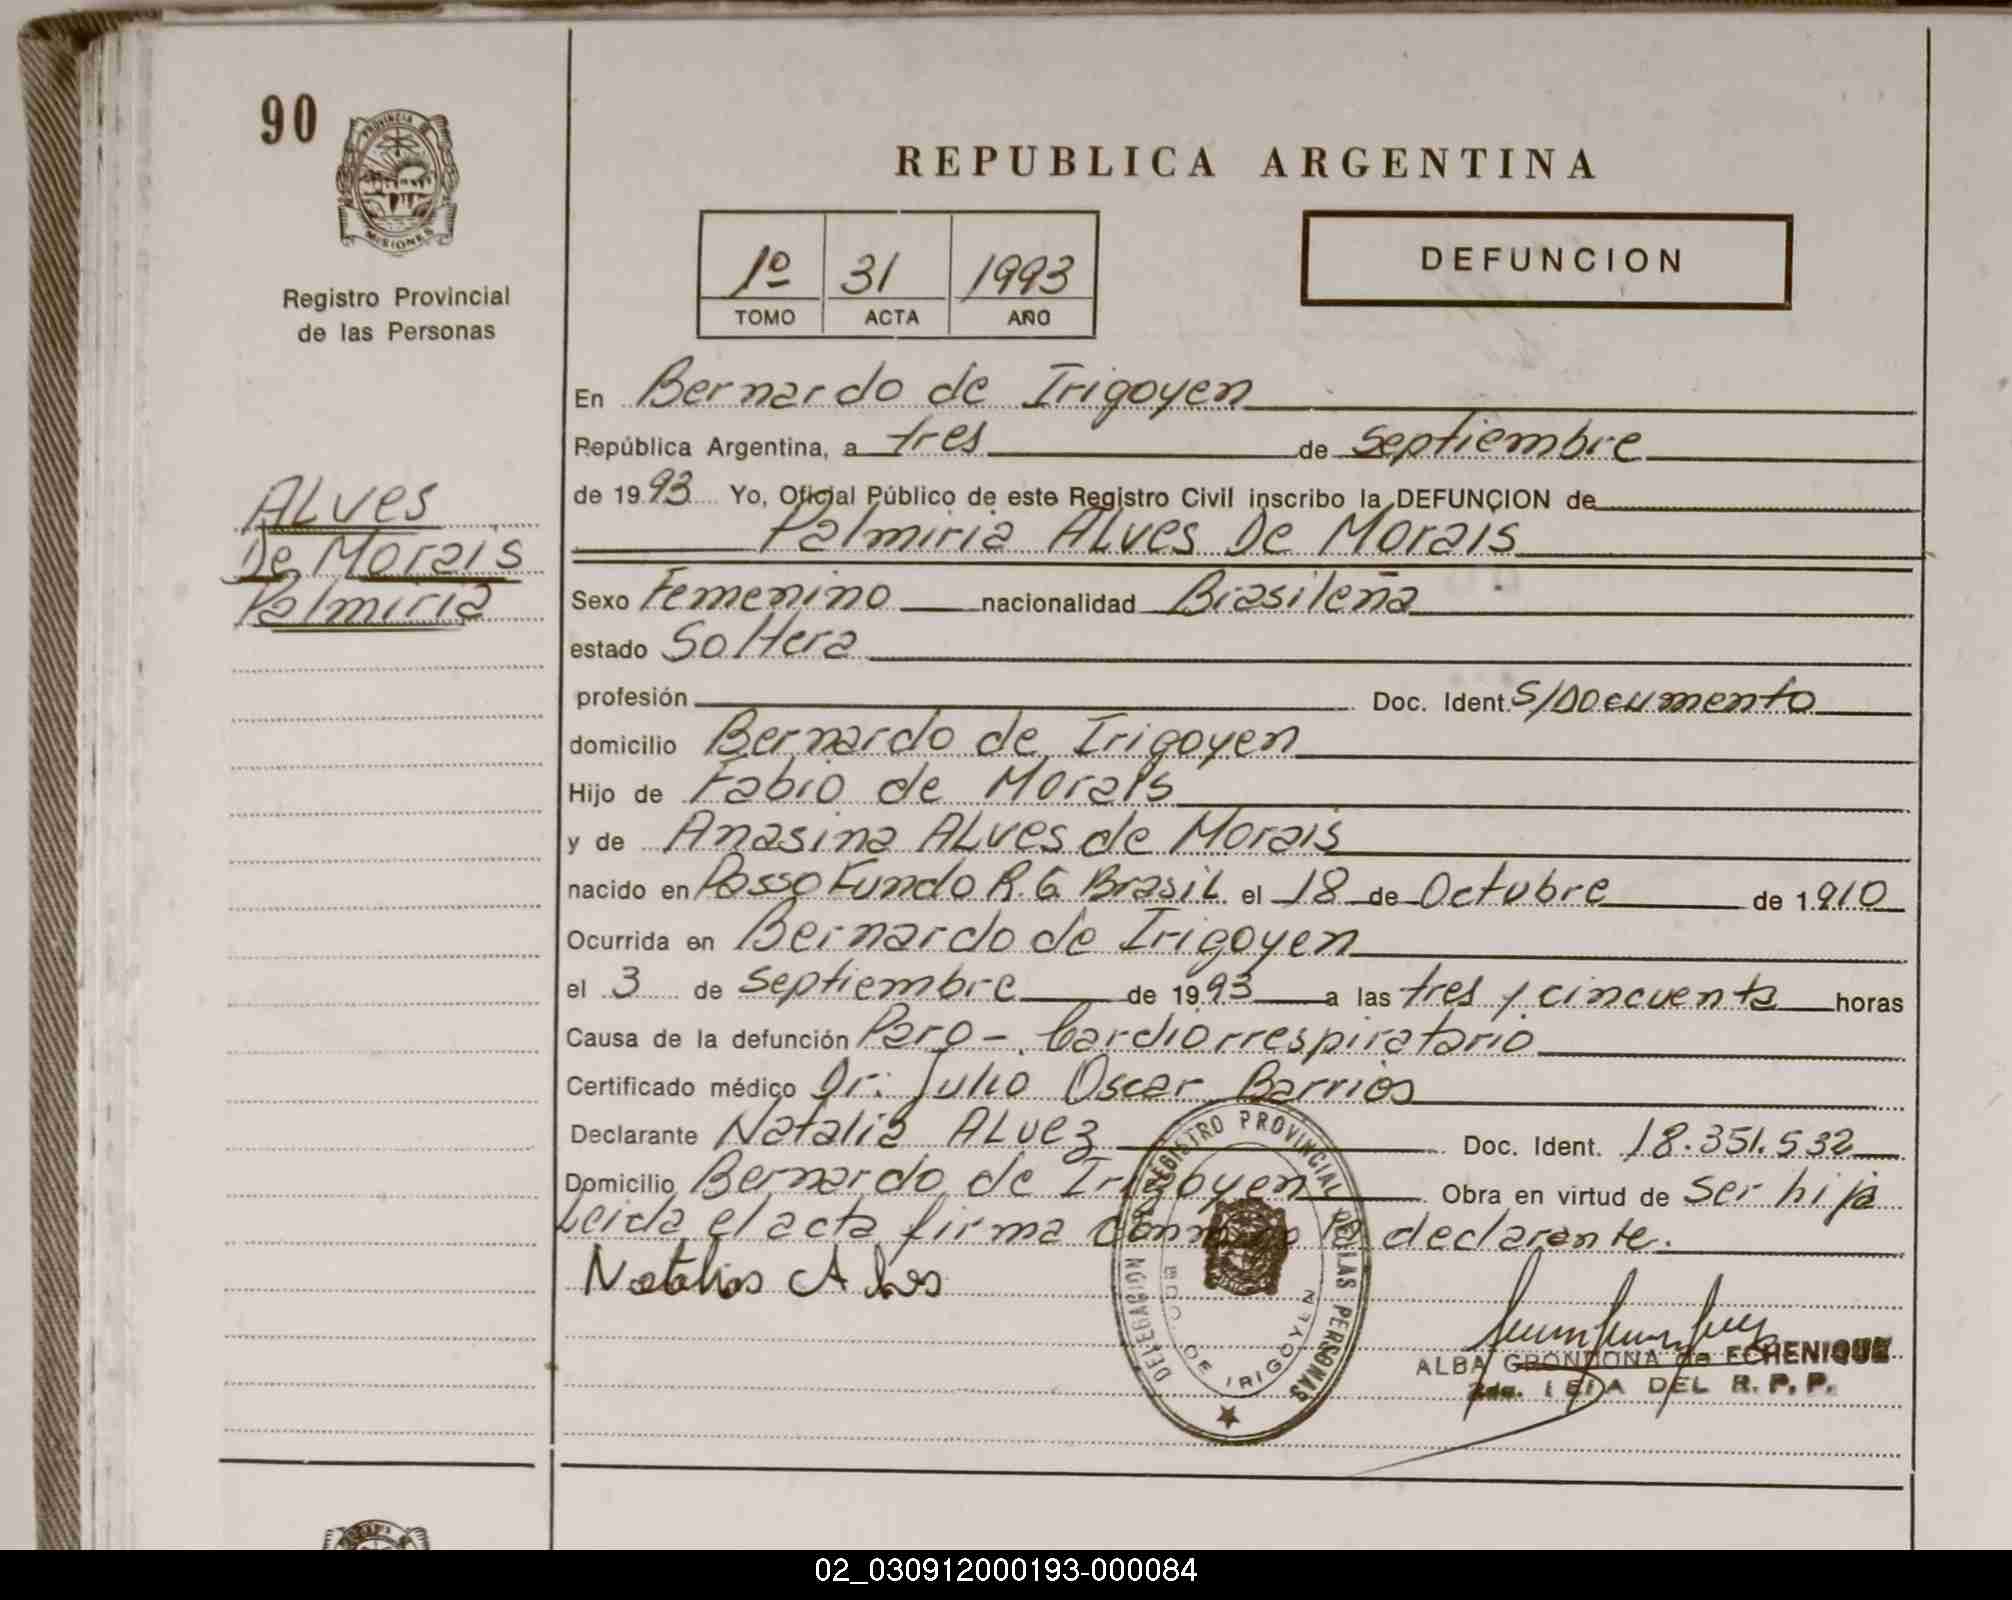 90
PROVINCIA DE
MISIONES
Registro Provincial
de las Personas
ALVES
De Morais
Palmiria
REPUBLICA ARGENTINA
1º 31 1993
TOMO ACTA AÑO
DEFUNCION
En Bernardo de Irigoyen
República Argentina, a tres de septiembre
de 1993 Yo, Oficial Público de este Registro Civil inscribo la DEFUNCION de
Palmiria ALves De Morais
Sexo Femenino nacionalidad Brasileña
estado Soltera
profesión Doc. Ident. S/Documento
domicilio Bernardo de Irigoyen
Hijo de Fabio de Morais
y de Anasina ALves de Morais
nacido en Passo Fundo R.G. Brasil el 18 de Octubre de 1910
Ocurrida en Bernardo de Irigoyen
el 3 de septiembre de 1993 a las tres y cincuenta horas
Causa de la defunción Paro - Cardiorrespiratorio
Certificado médico Dr: Julio Oscar Barrios
Declarante Natalia ALvez Doc. Ident. 18.351.532
Domicilio Bernardo de Irigoyen Obra en virtud de ser hija
Leida el acta firma conmigo la declarante.
Natalia Alves
DELEGACION REGISTRO PROVINCIAL DE LAS PERSONAS
BDO. DE IRIGOYEN
ALBA GRONDONA de ECHENIQUE
2da. DEL R. P. P.
02_030912000193-000084